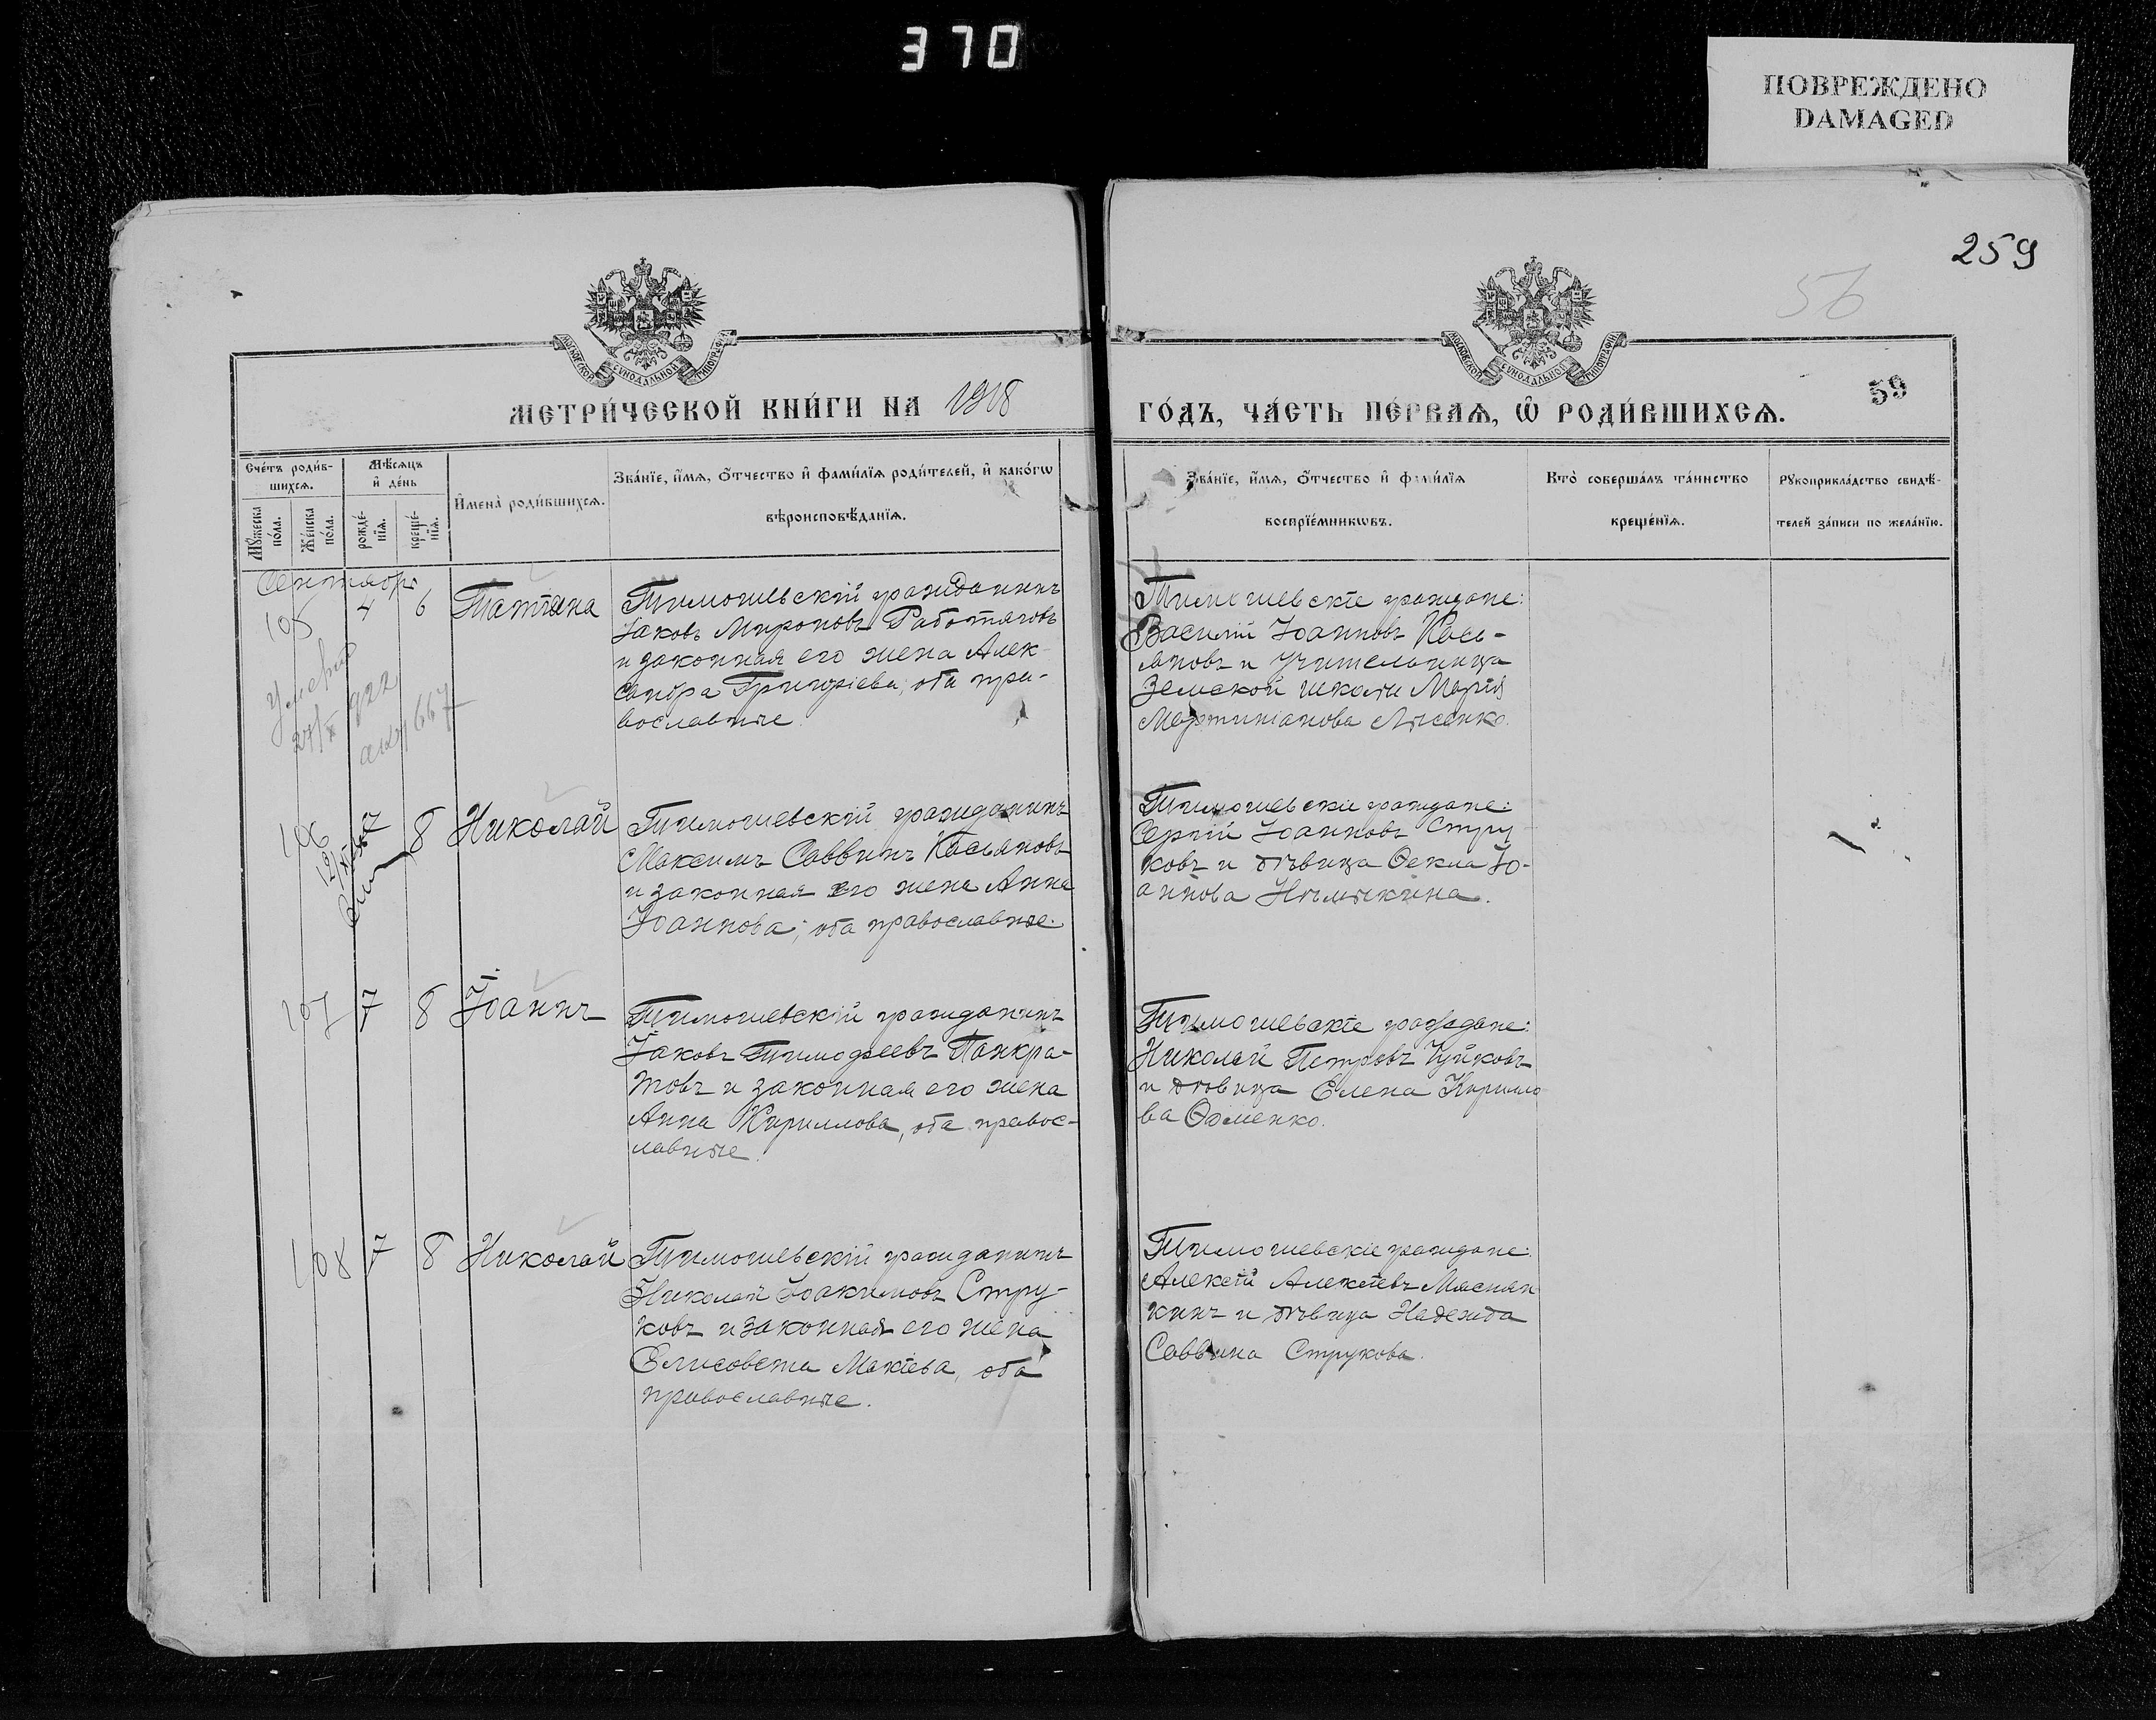 370
ПОВРЕЖДЕНО
DAMAGED
259
56
МОСКОВСКОЙ СѴНОДАЛЬНОЙ ТИПОГРАФІИ
МОСКОВСКОЙ СѴНОДАЛЬНОЙ ТИПОГРАФІИ
МЕТРИ́ЧЕСКОЙ КНИ́ГИ НА 1918
ГО́ДЪ, ЧА́СТЬ ПЕ́РВАѦ, Ѽ РОДИ́ВШИХСѦ.
59
Сче́тъ роди́в-
шихсѧ.
Мꙋ́жеска по́ла.
Же́нска по́ла.
Мѣ́сѧцъ
и҆ де́нь
рожде́-
нїѧ.
креще́-
нїѧ.
И҆мена̀ роди́вшихсѧ.
Зва́нїе, и҆́мѧ, ѻ҆́тчество и҆ фами́лїѧ роди́телей, и҆ како́гѡ
вѣроисповѣ́данїѧ.
Зва́нїе, и҆́мѧ, ѻ҆́тчество и҆ фами́лїѧ
воспрїе́мникѡвъ.
Кто̀ соверша́лъ та́инство
креще́нїѧ.
Рꙋкоприкла́дство свидѣ́-
телей за́писи по жела́нїю.
Сентябрь
105 4 6 Татіана
Тимошевскій гражданинъ
Іаковъ Мироновъ Работяговъ
и законная его жена Алек-
сандра Григоріева, оба пра-
вославные.
Тимошевскіе граждане:
Василій Іоанновъ Кась-
яновъ и учительница
Земской школы Марія
Мартиніанова Лысенко.
Умерла
922
акт 667
106 7 8 Николай
Тимошевскій гражданинъ
Максимъ Саввинъ Касьяновъ
и законная его жена Анна
Іоаннова; оба православные.
Тимошевскіе граждане:
Сергій Іоанновъ Стру
ковъ и дѣвица Ѳекла Іо-
аннова Нѣмыкина.
107 7 8 Іоаннъ
Тимошевскій гражданинъ
Іаковъ Тимофеевъ Панкра-
товъ и законная его жена
Анна Кириллова, оба правос-
лавные.
Тимошевскіе граждане:
Николай Петровъ Чуйковъ
и дѣвица Елена Кирилло
ва Ѳоменко.
108 7 8 Николай
Тимошевскій гражданинъ
Николай Іоакимовъ Стру-
ковъ и законная его жена
Елисавета Мокіева, оба
православные.
Тимошевскіе граждане:
Алексій Алексіевъ Маснян
кинъ и дѣвица Надежда
Саввина Струкова.